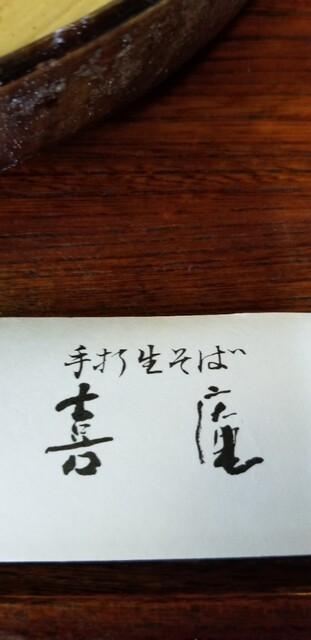 手打生そば
喜庵